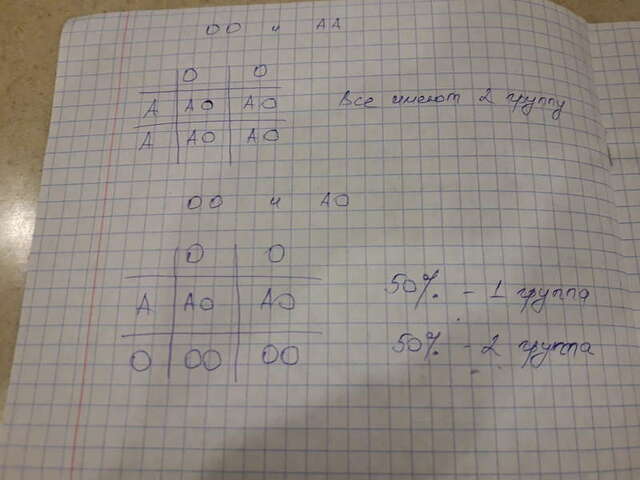 OO и AA
O O
A AO AO
Все имеют 2 группу
A AO AO
OO и AO
O O
A AO AO
50% - 1 группа
O OO OO
50% - 2 группа